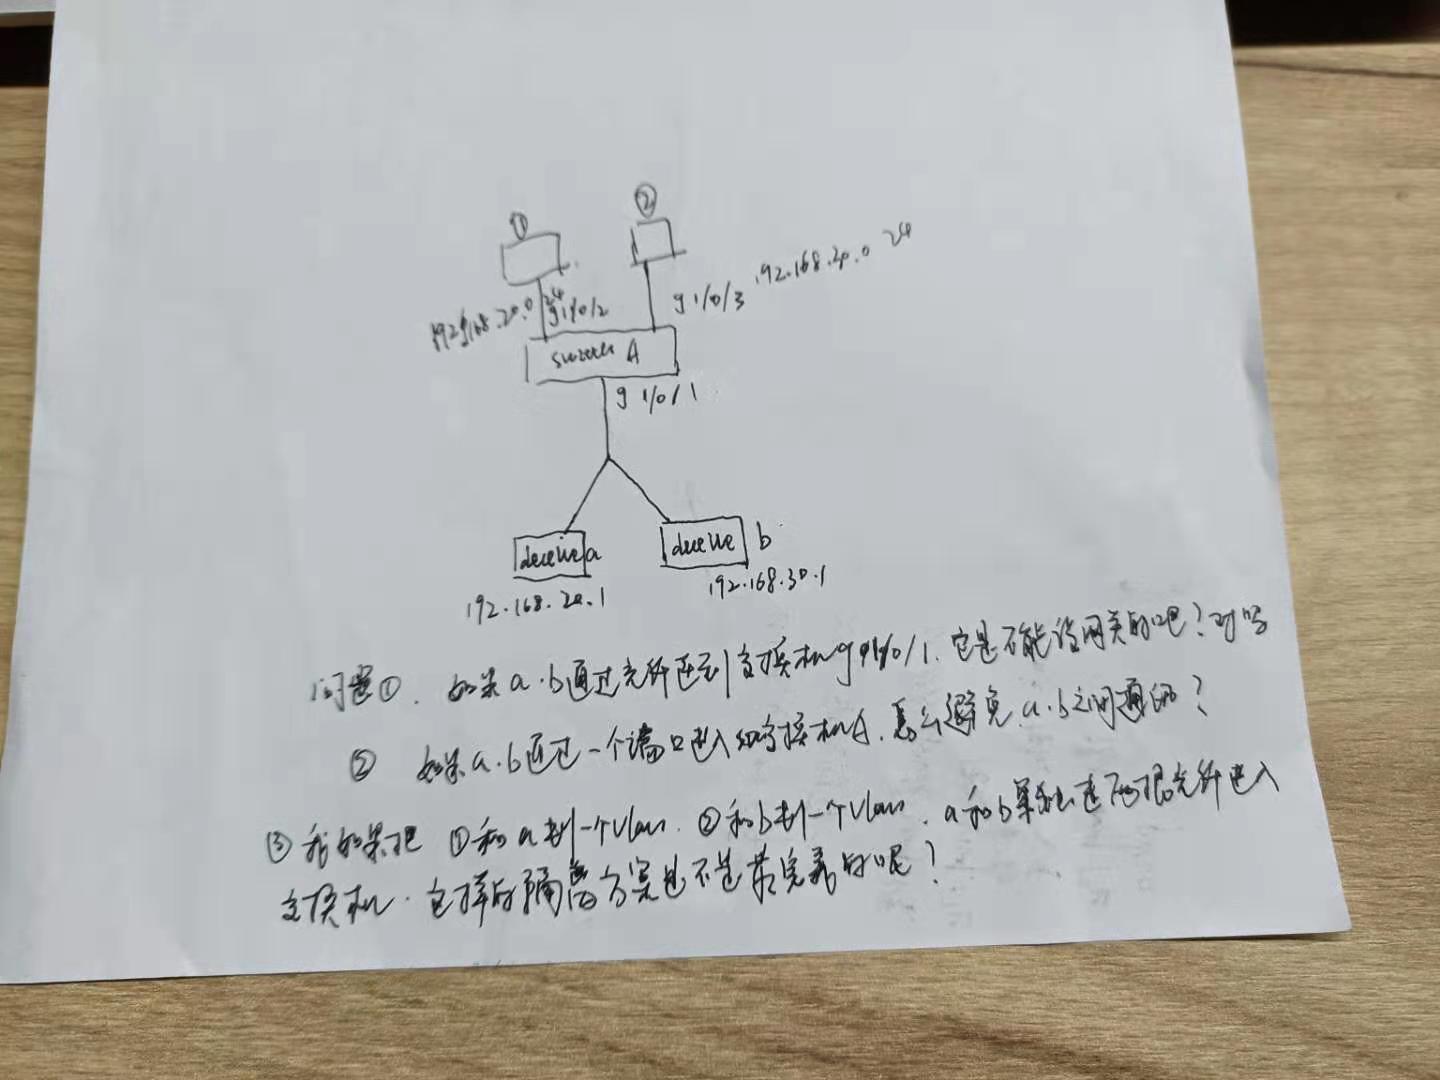 ① ②
192.168.20.0 24 g1/0/2
g 1/0/3 192.168.30.0 24
A
g 1/0/1
a b
192.168.20.1 192.168.30.1
问题①. 如果a.b通过光纤连到交换机g1/0/1. 它是不能设网关的吧?对吗
② 如果a.b通过一个端口进入交换机A. 怎么避免a.b之间通的?
③ 我如果把①和a划一个vlan. ②和b划一个vlan. a和b单独连两根光纤进入
交换机. 这样的隔离方案是不是最完善的呢?